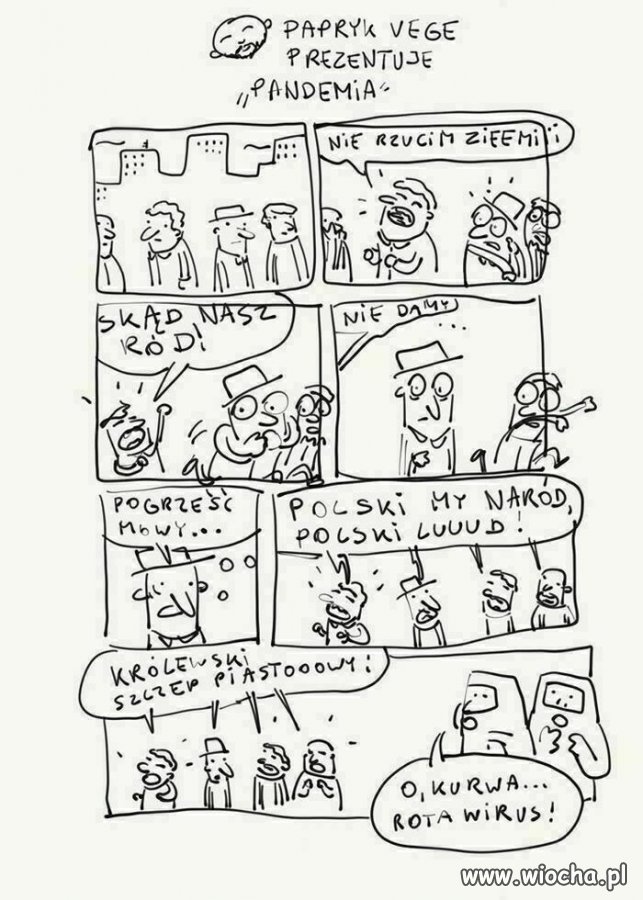 PAPRYK VEGE
PREZENTUJE
„PANDEMIA”
NIE RZUCIM ZIEEMI!
SKĄD NASZ
RÓD!
NIE DAMY
...
POGRZEŚĆ
MOWY...
POLSKI MY NARÓD,
POLSKI LUUUD!
KRÓLEWSKI
SZCZEP PIASTOOOWY!
O, KURWA...
ROTA WIRUS!
www.wiocha.pl